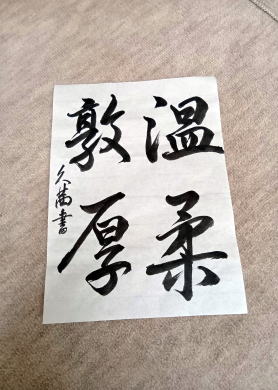 温柔
敦厚
久蕎書